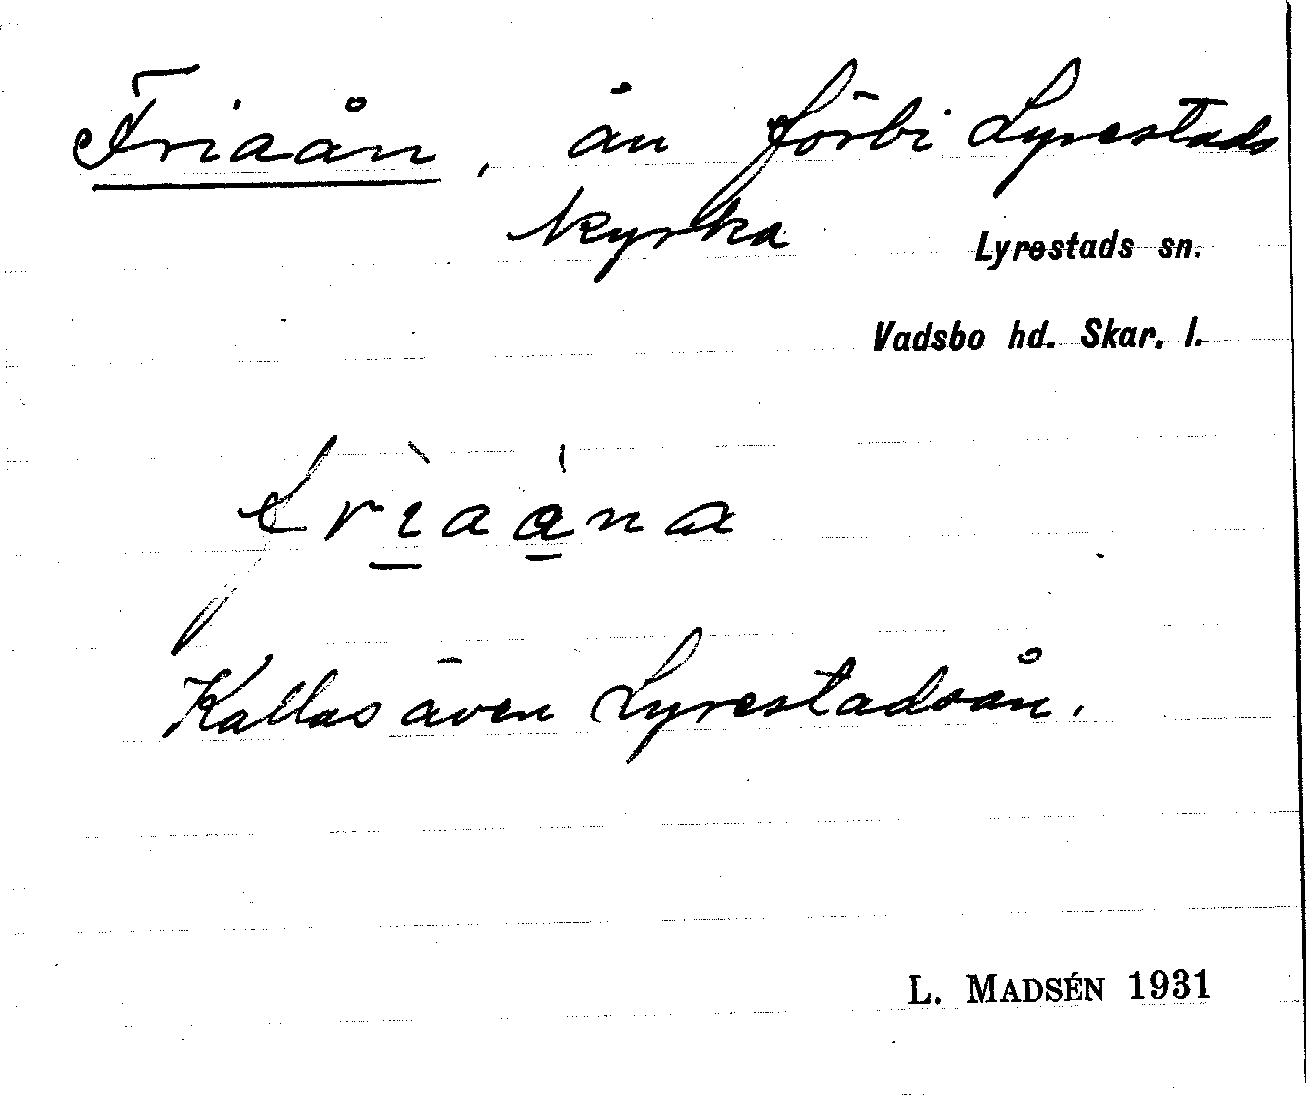 Friaån, ån förbi Lyrestads
kyrka
Lyrestads sn.
Vadsbo hd. Skar. l.
frìaána
Kallas även Lyrestadsån.
L. MADSÉN 1931